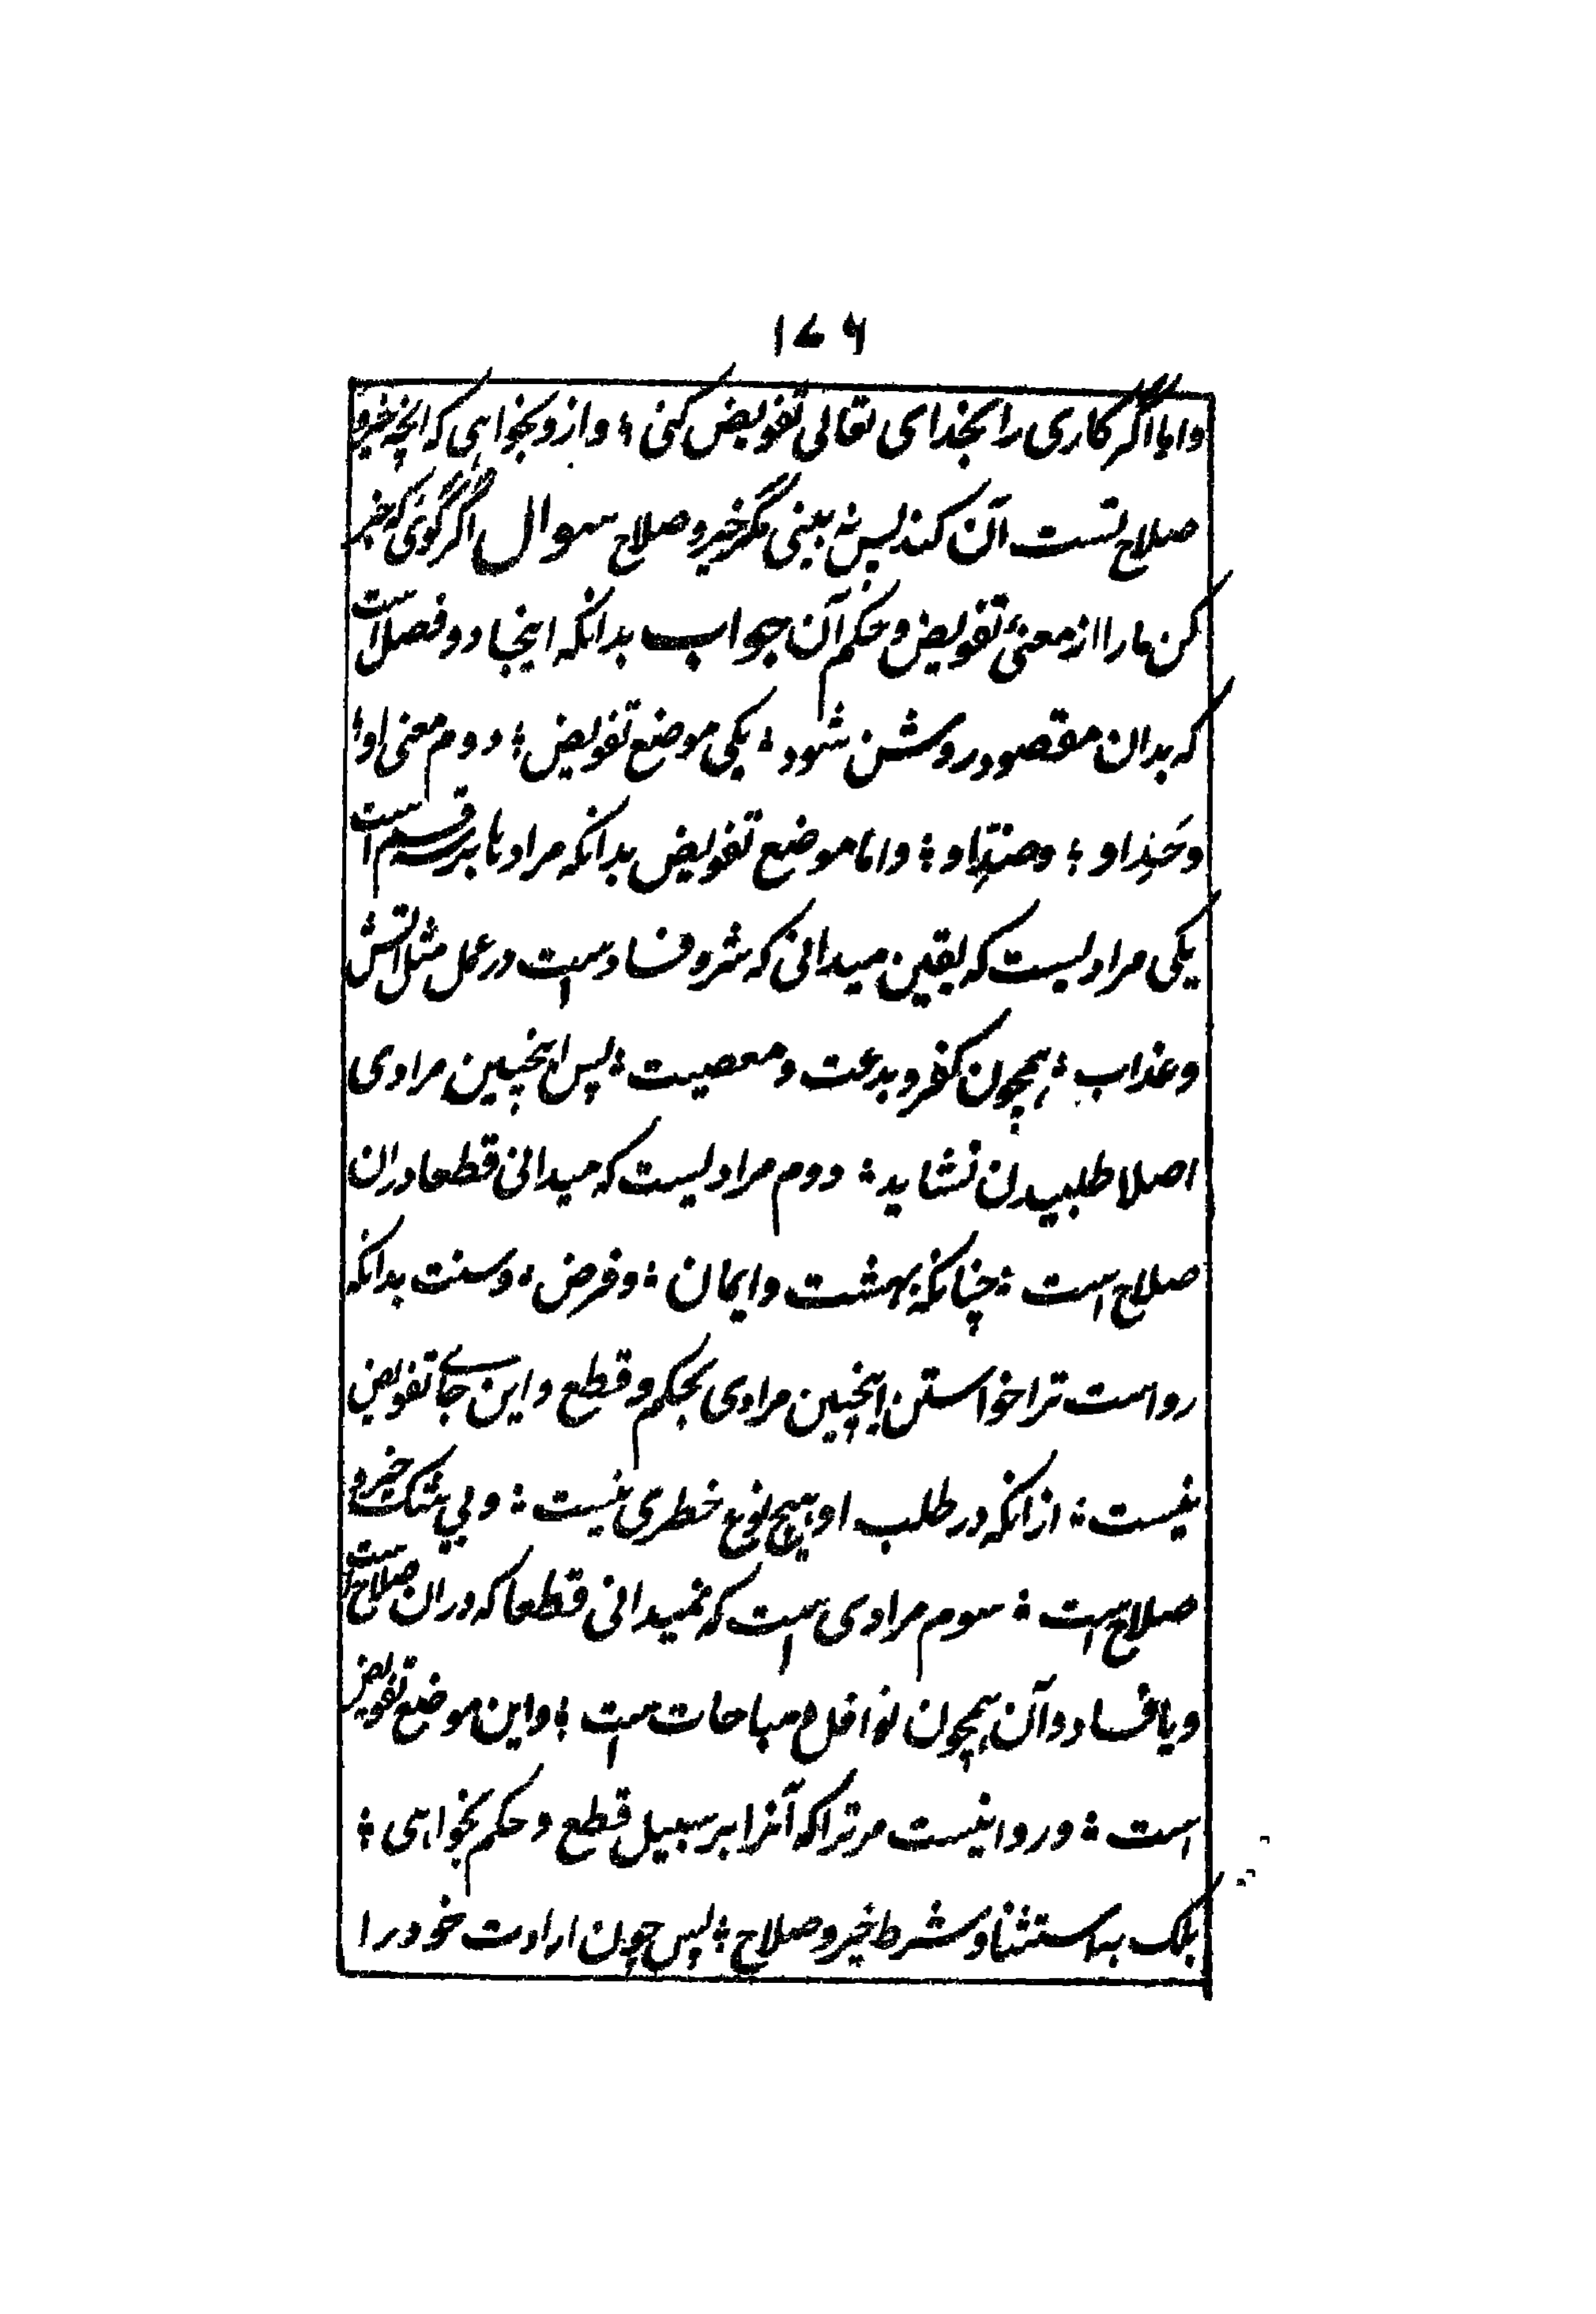 ۱۷۶
واما اگر کاری را بخدای تعالی تفویض کنی ؛ وازو بخواهی که انچه خیر و
صلاح تست آن کند پس نه بینی مگر خیر و صلاح سوال اگر گوئی که خبر
کن مارا از معنیٔ تفویض و حکم آن جواب بدانکه اینجا دو فصل است
که بدان مقصود روشن شود ؛ یکی موضع تفویض ؛ دوم معنی اوا
وحَدِ او ؛ وضدِّ او ؛ واما موضع تفویض بدانکه مرادها بر سه قسم است
یکی مرادیست که یقین میدانی که شر و فساد است در عمل مثل آتش
وعذاب ؛ همچون کفر و بدعت و معصیت ؛ پس اینچنین مرادی
اصلا طلبیدن نشاید ؛ دوم مرادیست که میدانی قطعا دران
صلاح است ؛ چنانکه بهشت وایمان ؛ وفرض ؛ وسنت بدانکه
رواست ترا خواستن اینچنین مرادی بحکم و قطع واین جای تفویض
نیست ؛ ازانکه در طلب او هیچ نوع خطری نیست ؛ وبی شک خیر و
صلاح است ؛ سوم مرادی است که نمیدانی قطعا که دران صلاح است
ویا فساد وآن همچون نوافل و مباحات است ؛ واین موضع تفویض
است ؛ وروا نیست مر ترا که آنرا بر سبیل قطع و حکم بخواهی ؛
بلک به استثنا و شرط خیر و صلاح ؛ پس چون ارادت خود را